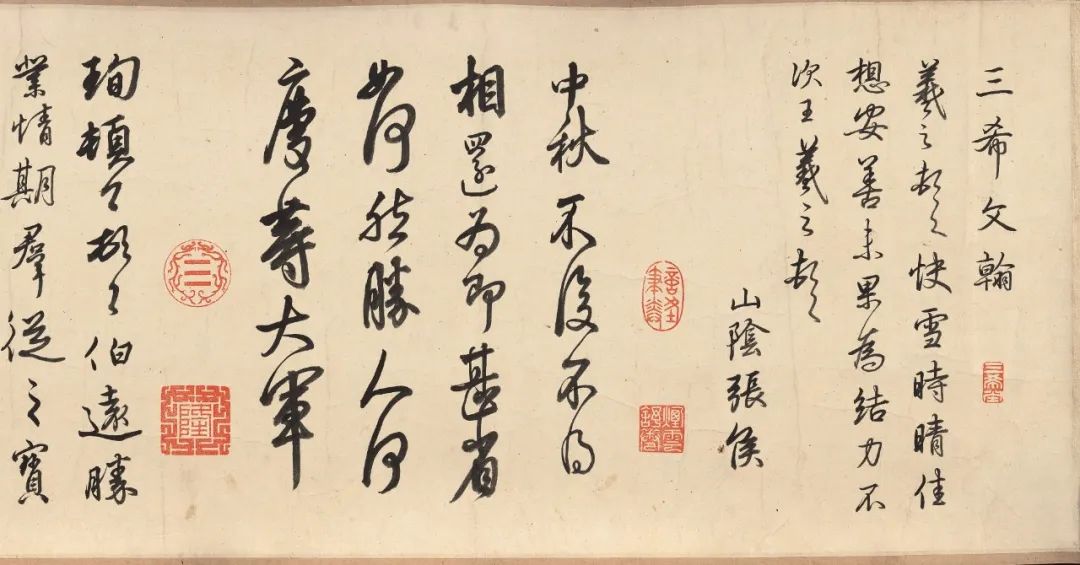 三希文翰
三希堂
羲之頓首快雪時晴佳
想安善未果為結力不
次王羲之頓首
山陰張侯
中秋不復不得
相還為即甚省
如何然勝人何
慶等大軍
隆
珣頓首頓首伯遠勝
業情期羣從之寶